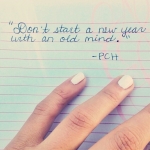 "Don't start a new year
with an old mind."
-PCH